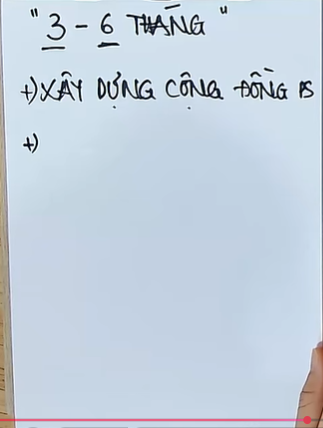 "3 - 6 THÁNG"
+) XÂY DỰNG CỘNG ĐỒNG PS
+)